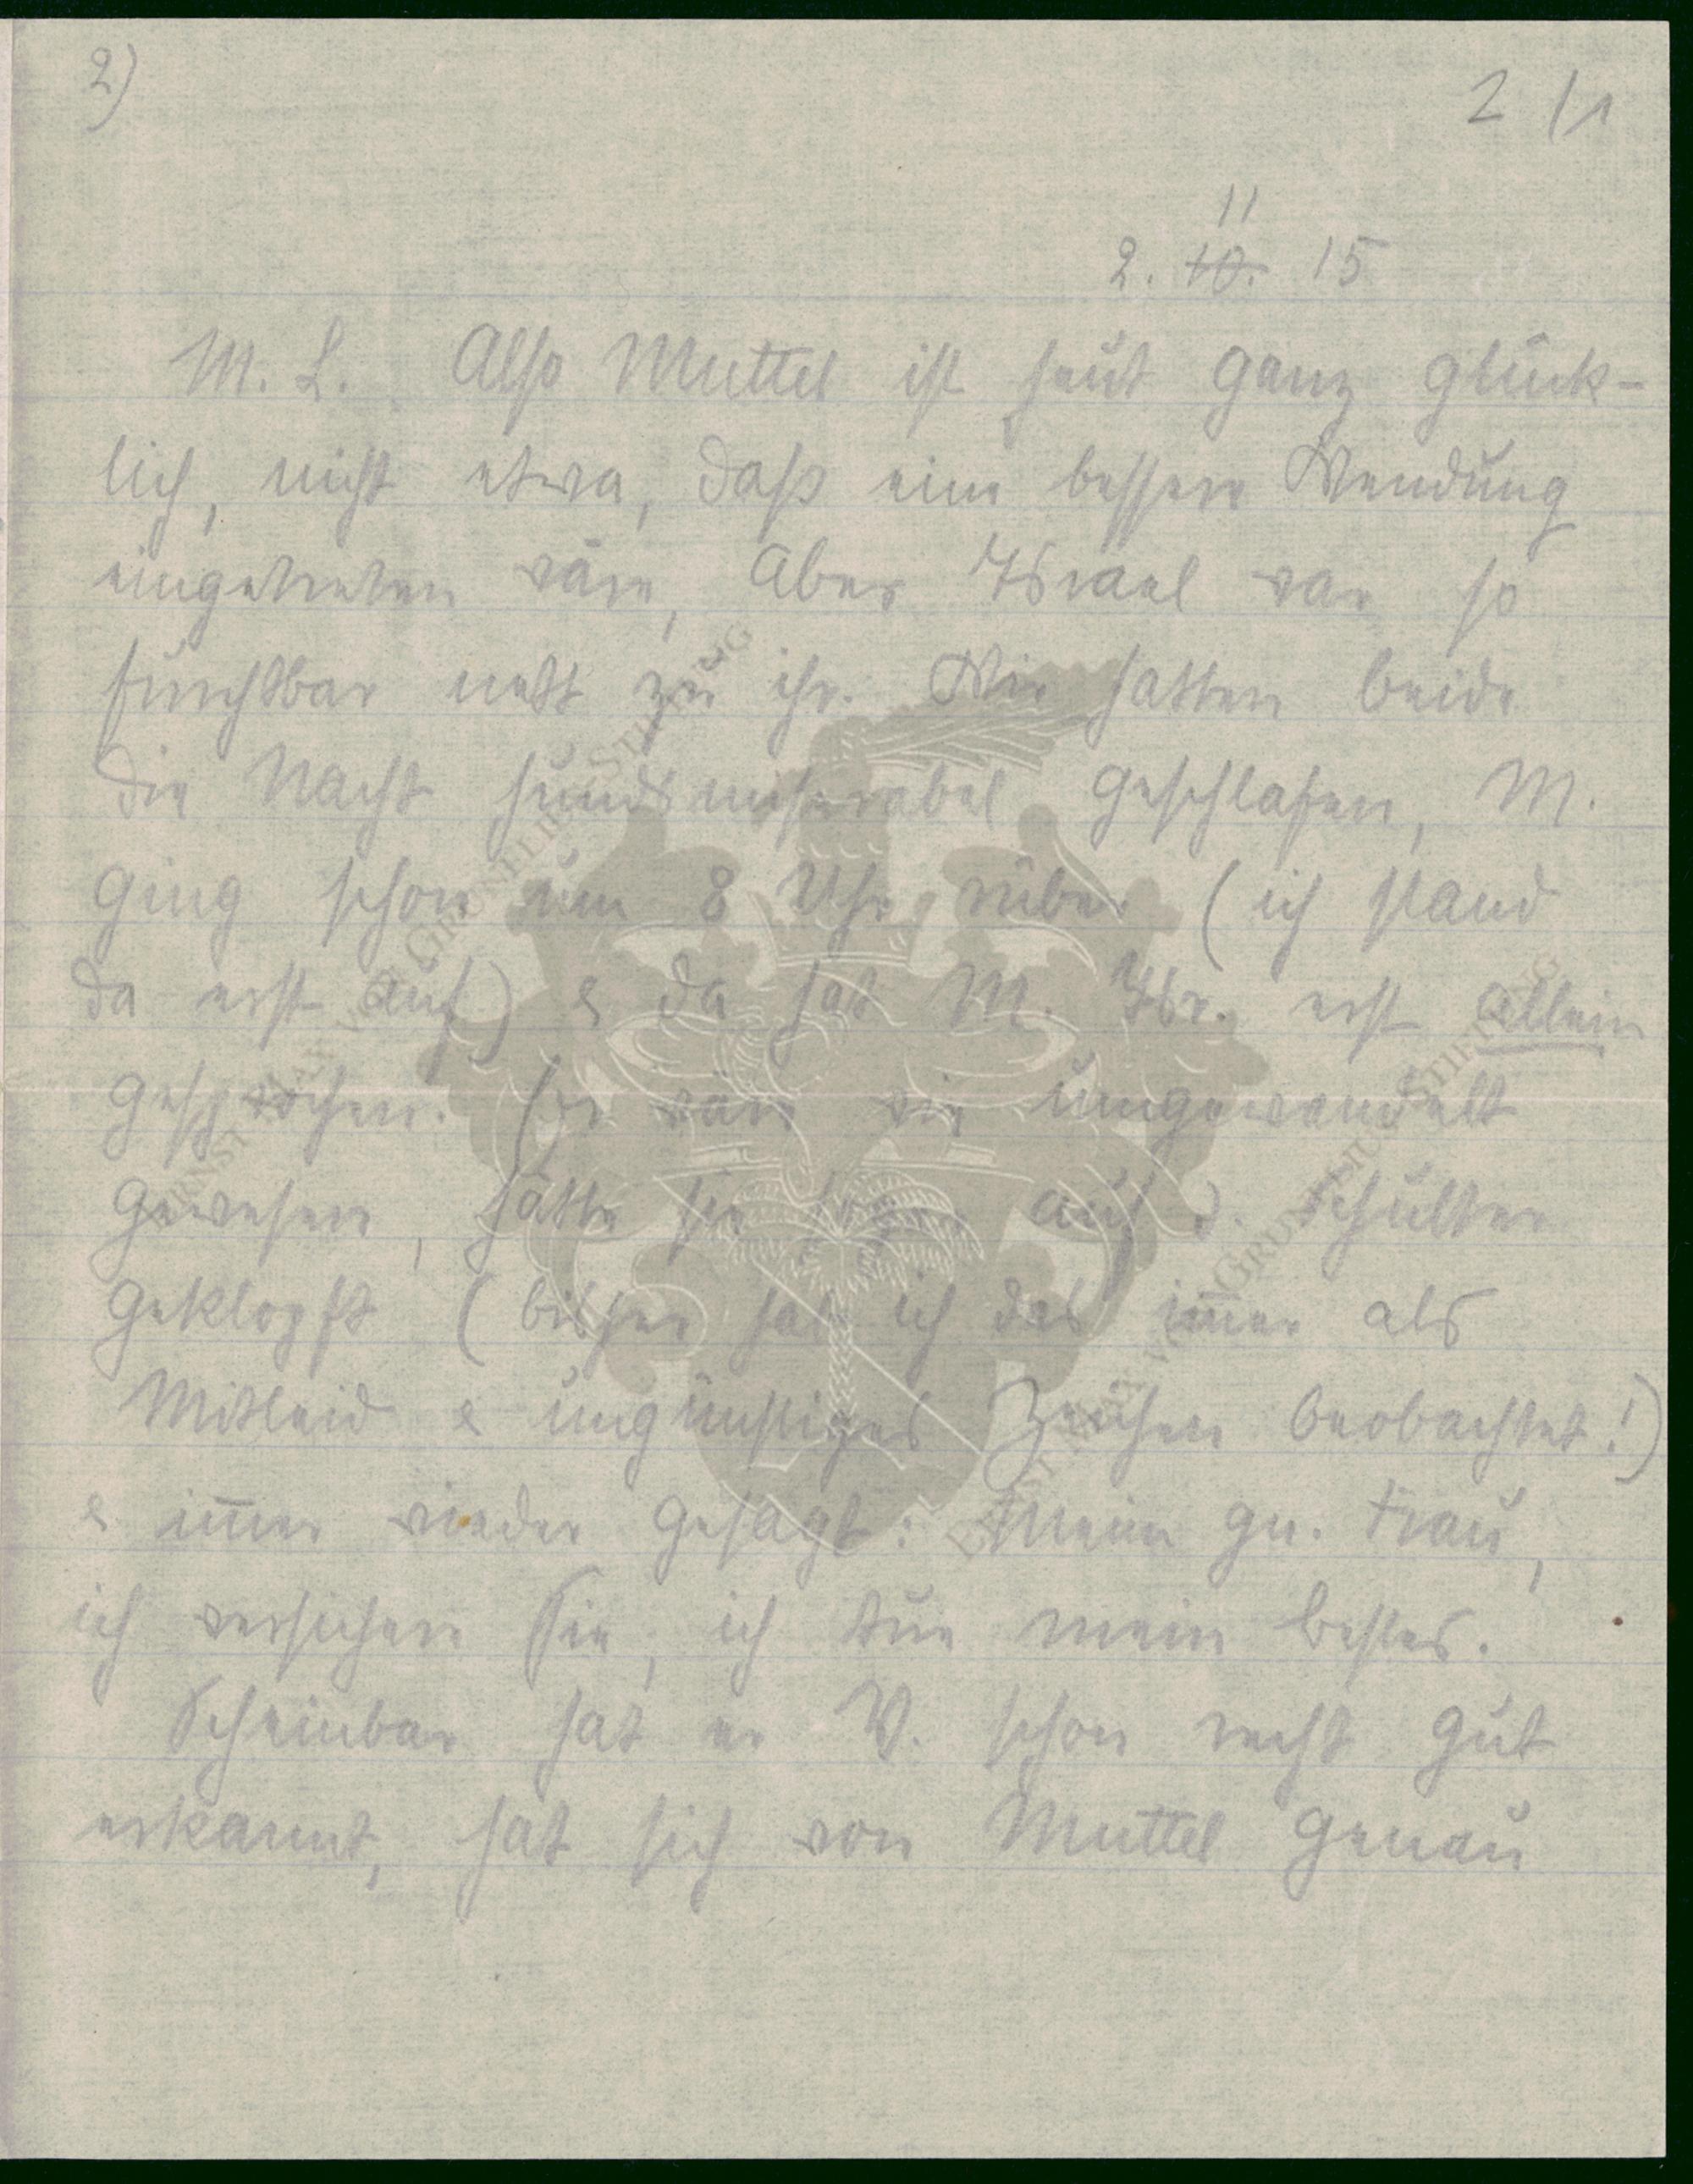 2)
2 /1
11
2. 10. 15
M. L. Also Muttel ist heut ganz glück-
lich, nicht etwa, daß eine bessere Wendung
eingetreten wäre, aber Israel war so
furchtbar nett zu ihr. Wir hatten beide
die Nacht hundsmiserabel geschlafen, M.
ging schon um 8 Uhr rüber (ich stand
da erst auf) & da hat M. Isr. erst allein
gesprochen. Er wäre wie umgewandelt
gewesen, hätte sie auf d. Schulter
geklopft (bisher hab ich das im̄er als
Mitleid & ungünstiges Zeichen beobachtet!)
& im̄er wieder gesagt: Meine gn. Frau,
ich versichere Sie, ich tue mein bestes.
Scheinbar hat er V. schon recht gut
erkannt, hat sich von Muttel genau